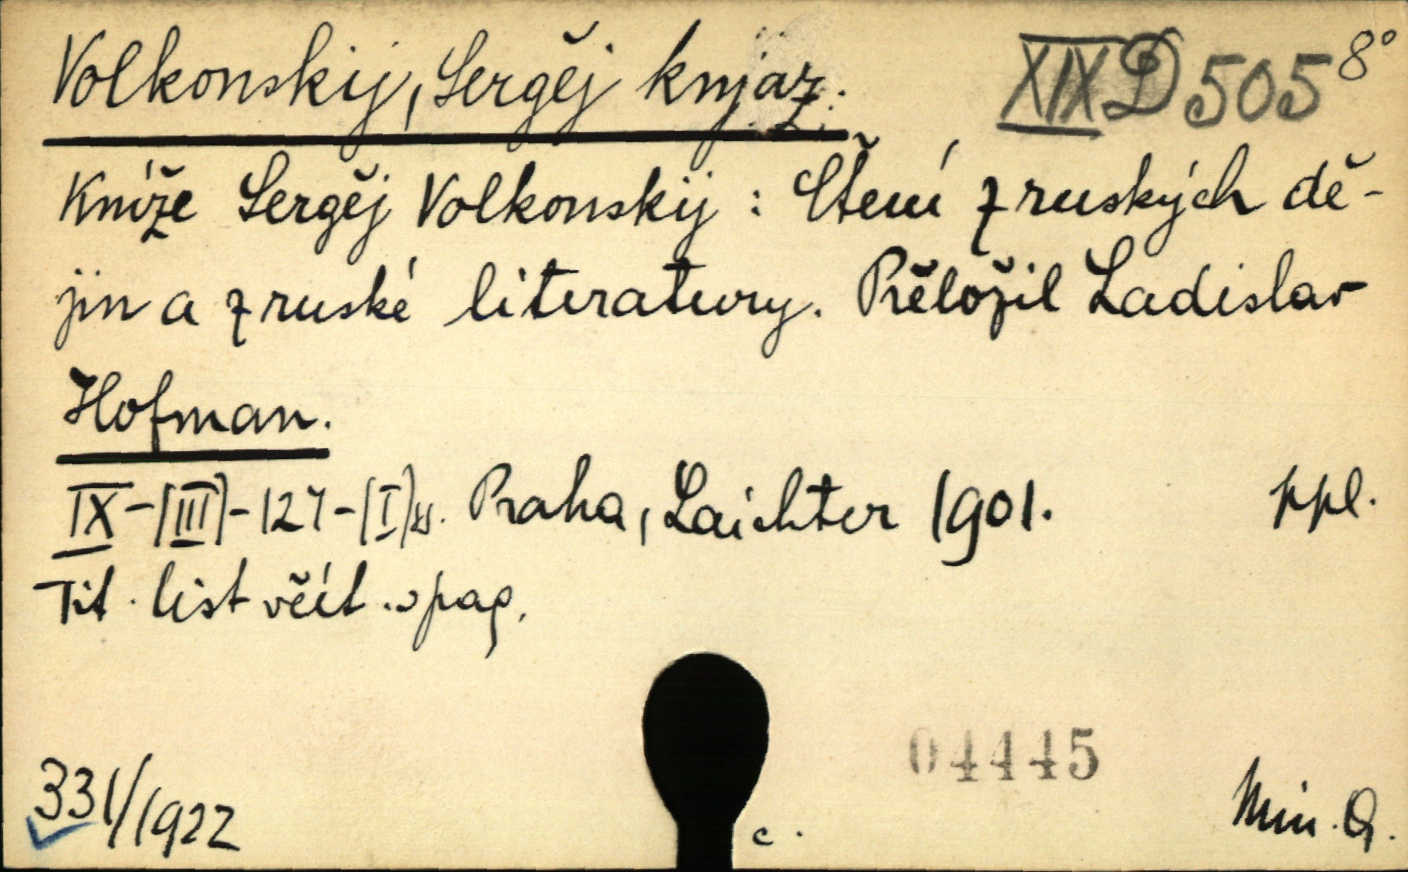 Volkonskij, Sergěj knjaz.
XIX D 505 8°
Kníže Sergěj Volkonskij: Čtení z ruských dě-
jin a z ruské literatury. Přěložil Ladislav
Hofman.
IX-[III]-127-[I] s. Praha, Laichter 1901. ppl.
Tit. list včít. v pag.
04445
331/1922
c.
Min. O.